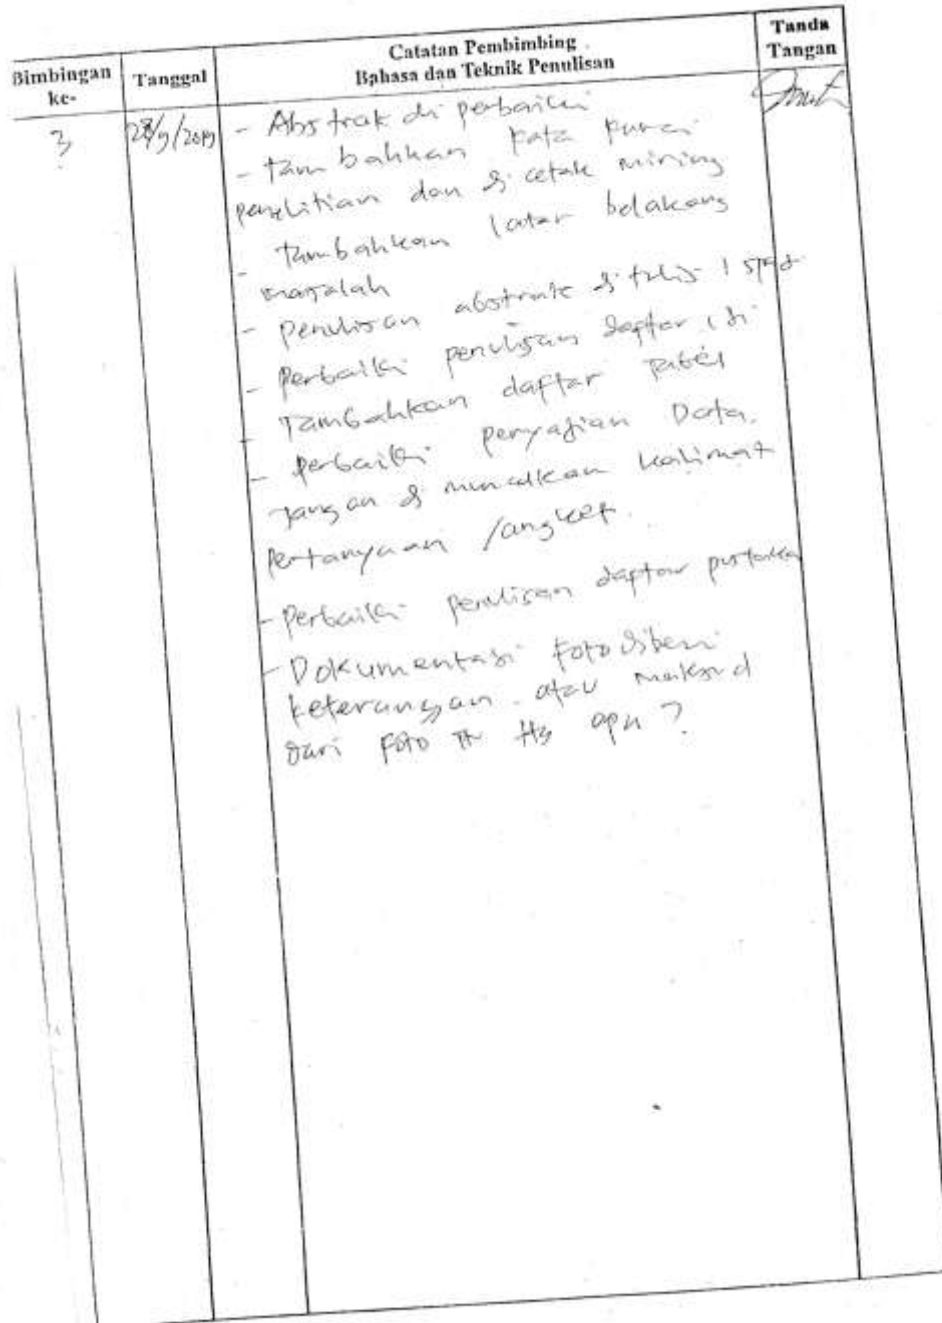 Bimbingan
ke-
Tanggal
Catatan Pembimbing
Bahasa dan Teknik Penulisan
Tanda
Tangan
3
28/9/2019
- Abstrak di perbaiki
- Tambahkan kata kunci
penelitian dan di cetak miring
- Tambahkan latar belakang
masalah
- Penulisan abstrak di tulis 1 spasi
- Perbaiki penulisan daftar isi
- Tambahkan daftar Tabel
- Perbaiki penyajian Data.
Jangan di munculkan kalimat
Pertanyaan /angket.
- Perbaiki penulisan daptar pustaka
- Dokumentasi Foto diberi
keterangan atau maksud
dari Foto apa ?